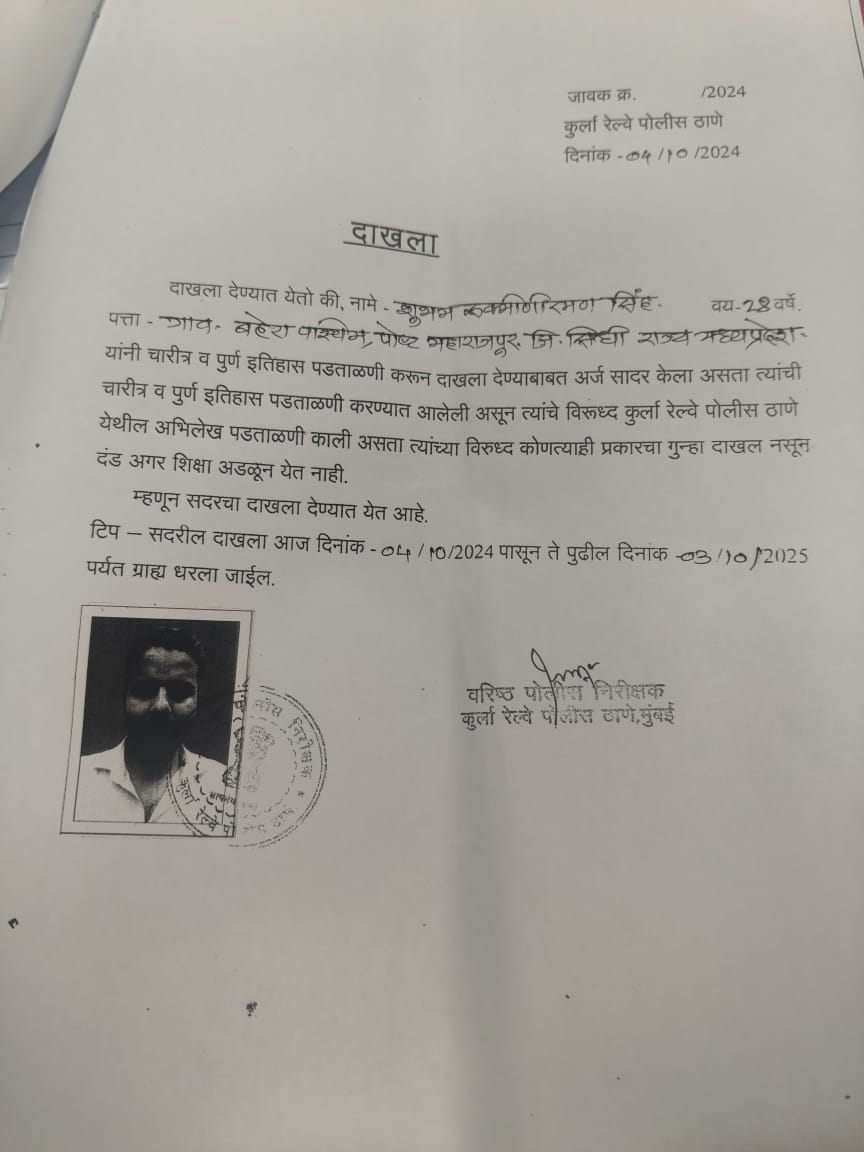 जावक क्र. /2024
कुर्ला रेल्वे पोलीस ठाणे
दिनांक -०४/१०/2024
दाखला
दाखला देण्यात येतो की, नामे - शुभम रुक्मीणीरमण सिंह. वय-28 वर्षे.
पत्ता - गाव- बहेरा पश्चिम, पोष्ट महाराजपूर, जि. सिधी राज्य मध्यप्रदेश-
यांनी चारीत्र व पुर्ण इतिहास पडताळणी करून दाखला देण्याबाबत अर्ज सादर केला असता त्यांची
चारीत्र व पुर्ण इतिहास पडताळणी करण्यात आलेली असून त्यांचे विरूध्द कुर्ला रेल्वे पोलीस ठाणे
येथील अभिलेख पडताळणी काली असता त्यांच्या विरुध्द कोणत्याही प्रकारचा गुन्हा दाखल नसून
दंड अगर शिक्षा अडळून येत नाही.
म्हणून सदरचा दाखला देण्यात येत आहे.
टिप – सदरील दाखला आज दिनांक -०४/१०/2024 पासून ते पुढील दिनांक -०३/१०/2025
पर्यत ग्राह्य धरला जाईल.
वरिष्ठ पोलीस निरीक्षक
कुर्ला रेल्वे पोलीस ठाणे,मुंबई
निरीक्षक
कुर्ला रेल्वे